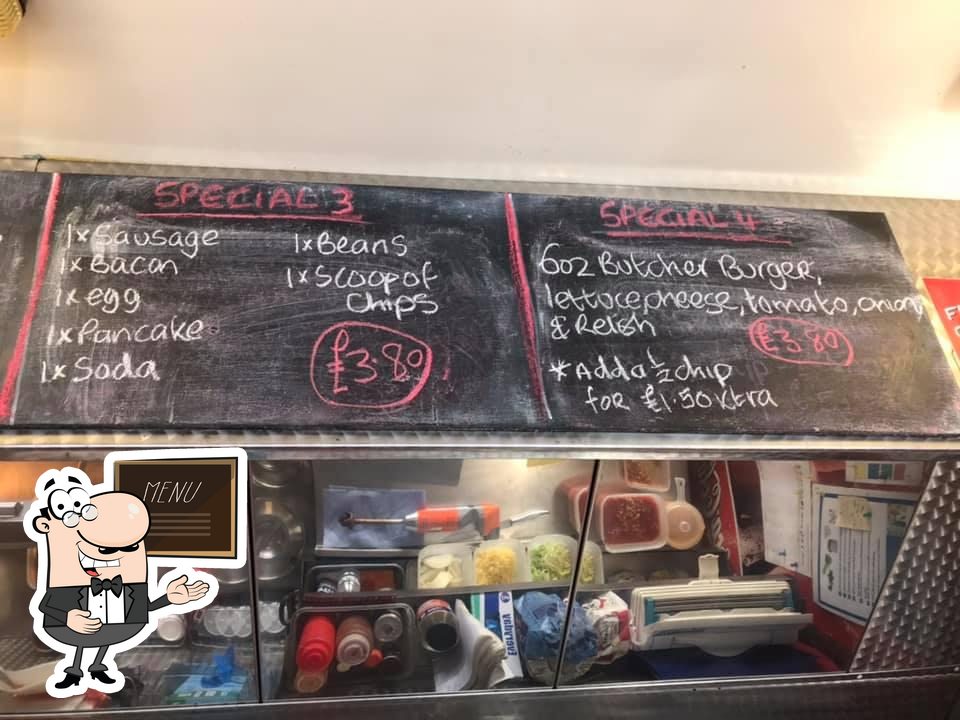 SPECIAL 3
1xSausage
1xBacon
1xegg
1xPancake
1xSoda
1xBeans
1xScoop of
Chips
£3.80
SPECIAL 4
6oz Butcher Burger,
lettuce,cheese, tomato, onion,
& Relish
£3.80
*Add a ½ chip
for £1.50 xtra
MENU